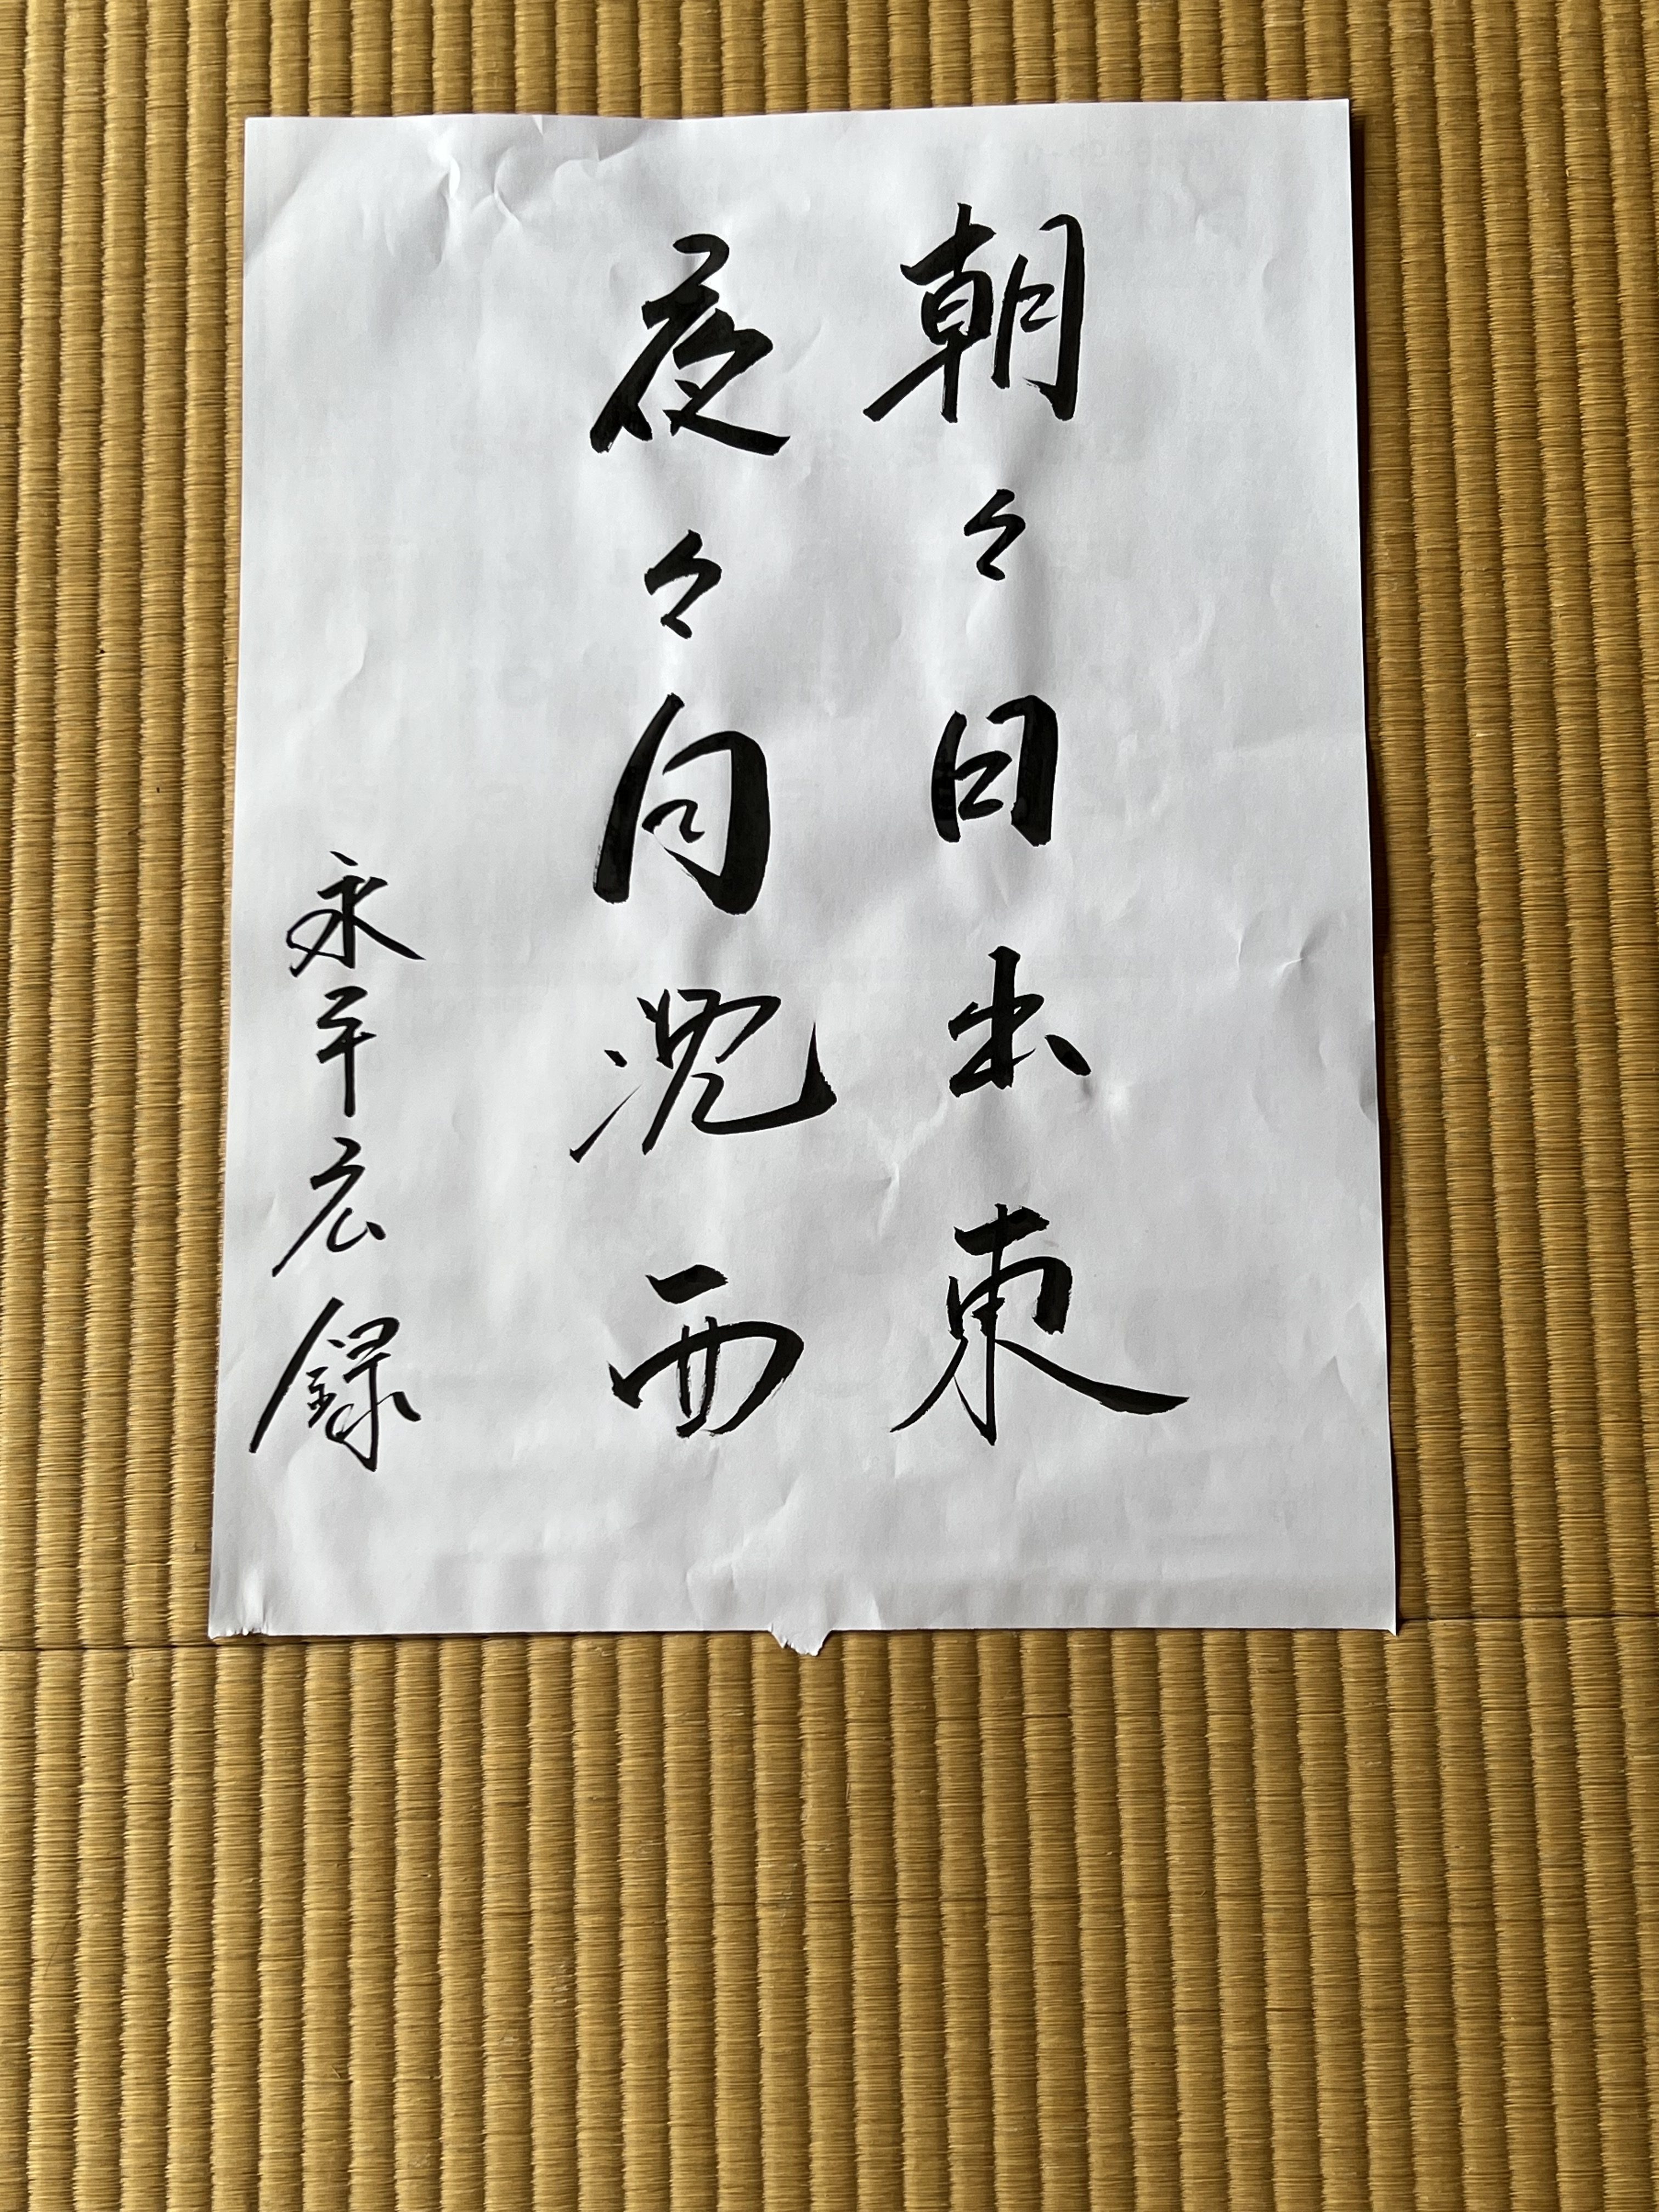 朝々日出東
夜々月沈西
永平広録